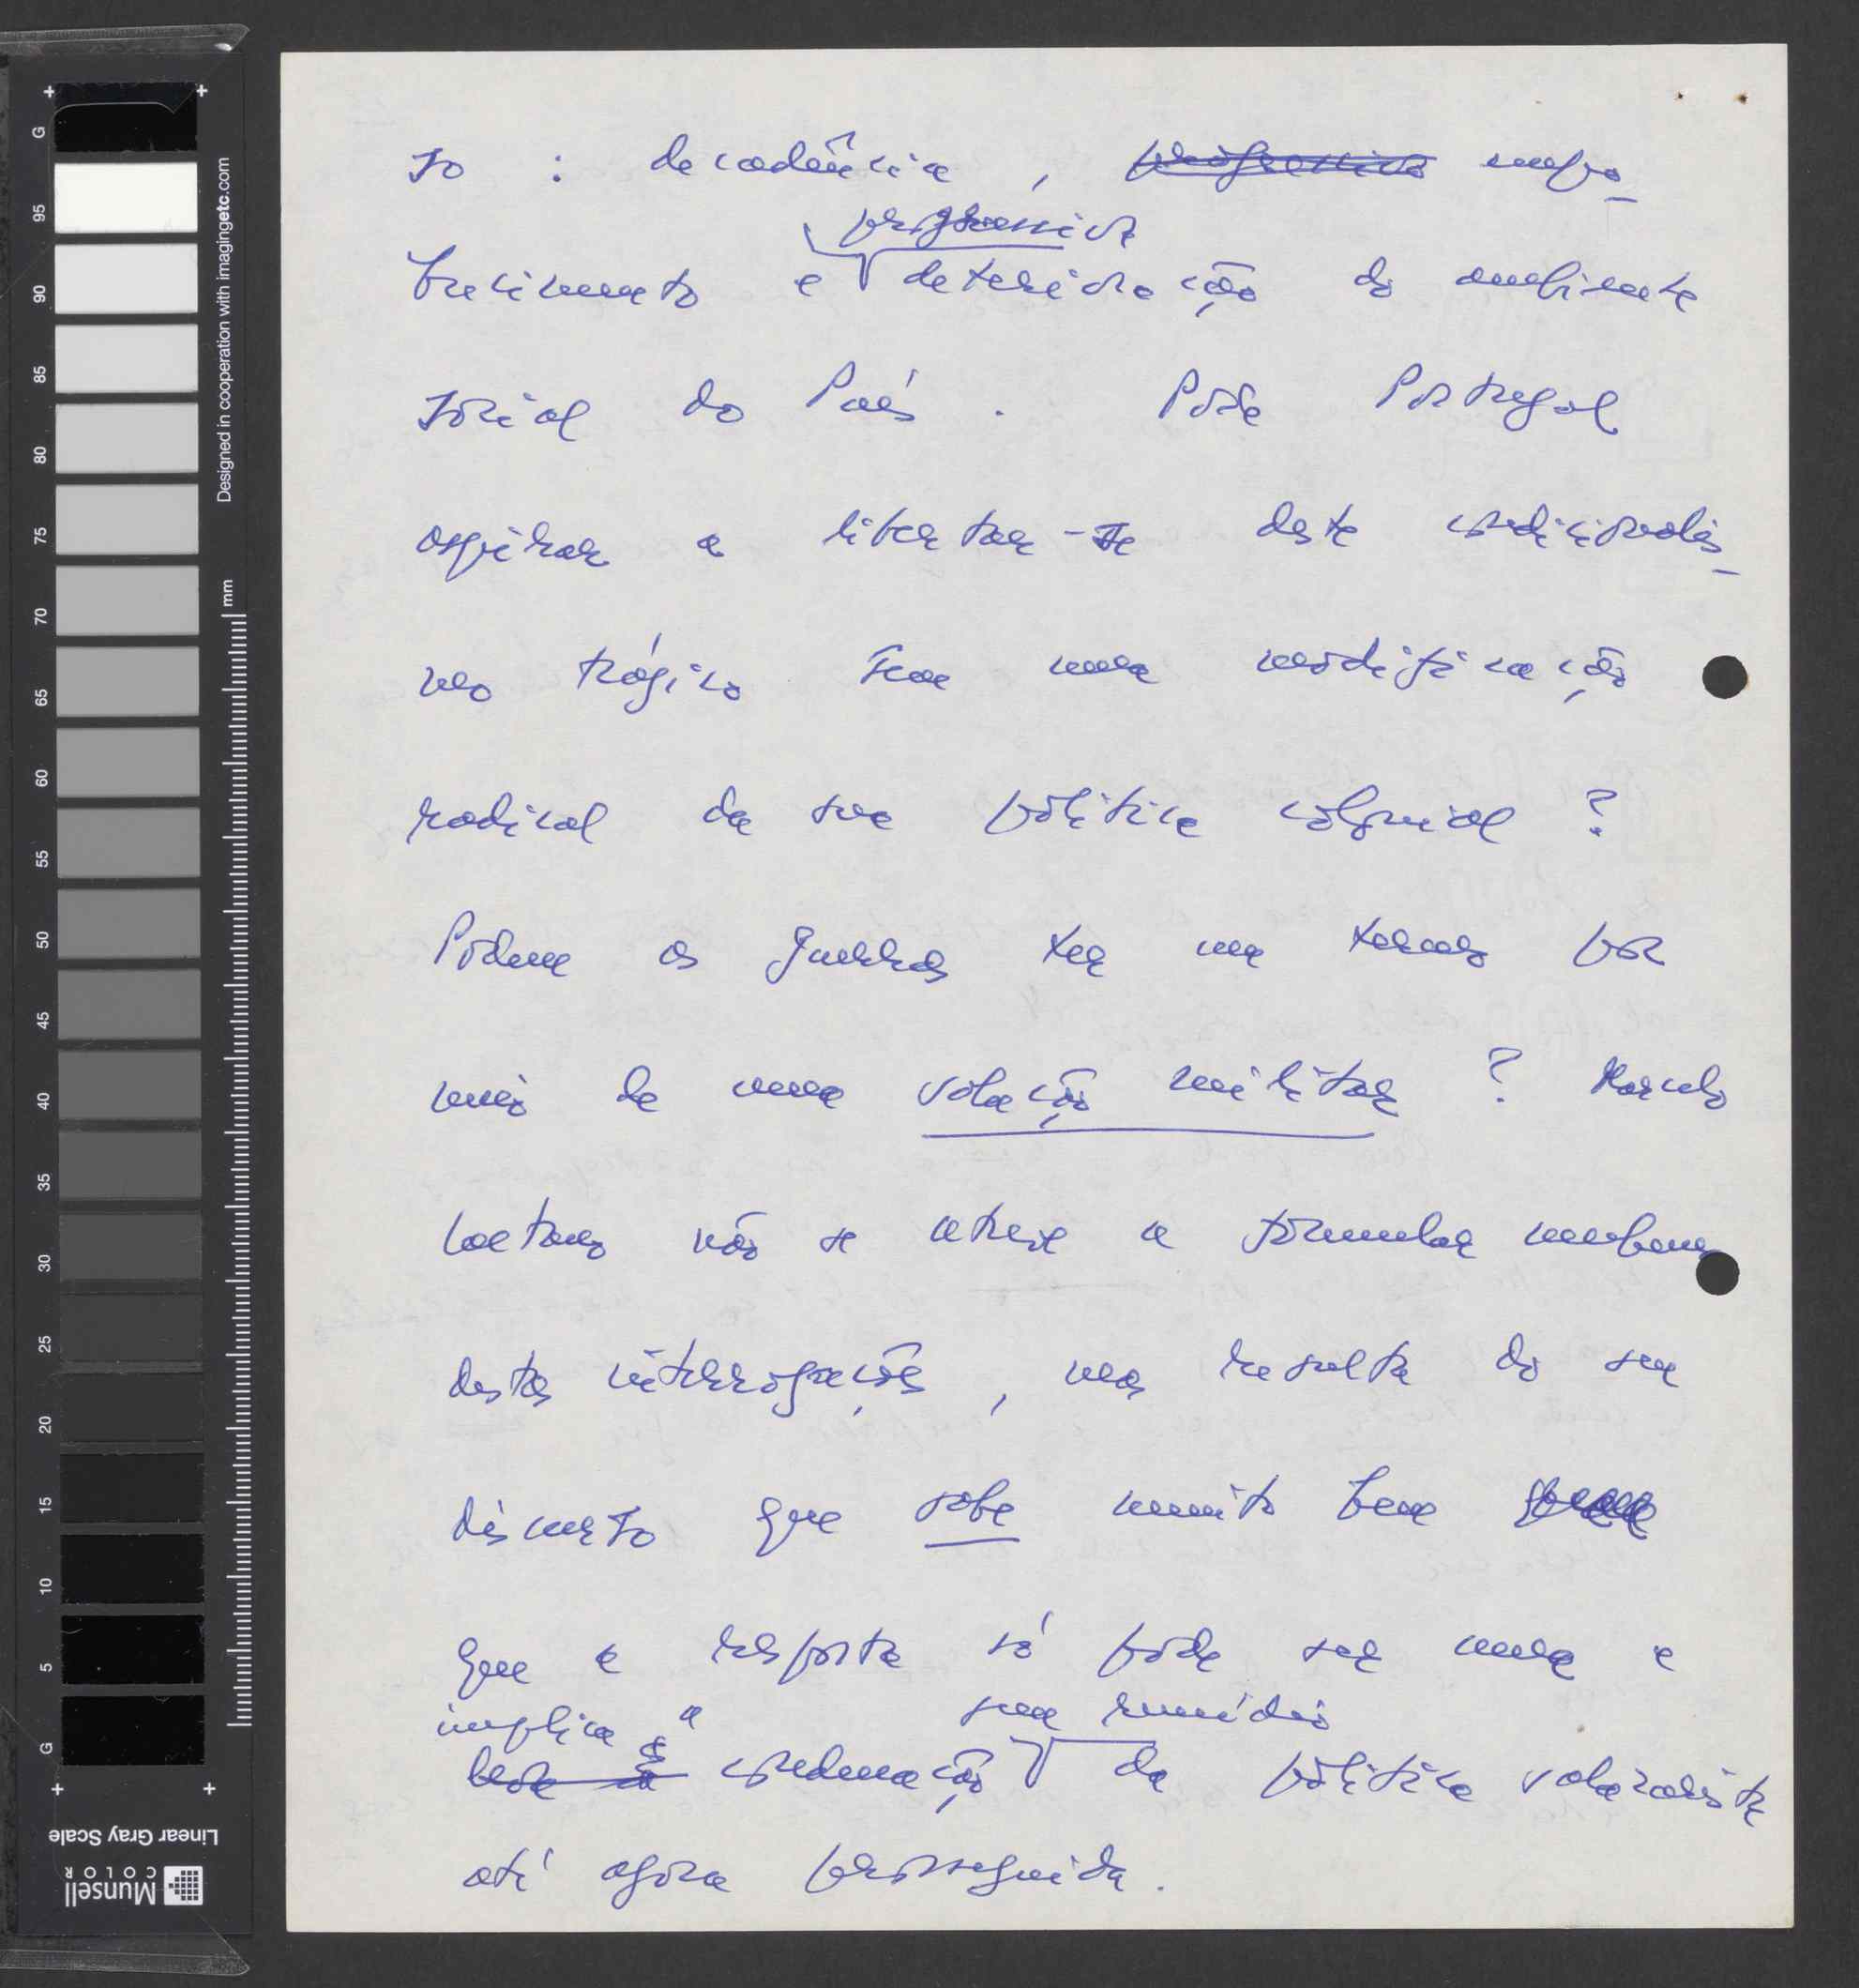 so : decadência , progressivo empo-
brecimento e progressiva deterioração do ambiente
social do País . Pode Portugal
aspirar a libertar-se deste condicionalis-
mo trágico sem uma modificação
radical da sua política colonial ?
Podem as guerras ter um termo por
meio de uma solução militar ? Marcelo
Caetano não se atreve a formular nenhuma
destas interrogações , mas resulta do seu
discurso que sabe muito bem
que a resposta só pode ser uma e
implica a sem remédio
condenação da política salazarista
até agora prosseguida .
G
95
90
85
80
75
70
65
60
55
50
45
40
35
30
25
20
15
10
5
G
Designed in cooperation with imagingetc.com
mm
Linear Gray Scale
Munsell
COLOR